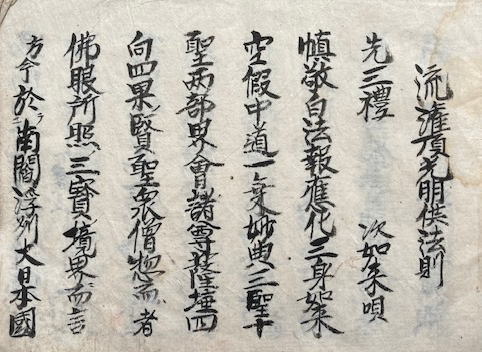 流灌頂光明供法則
先三禮　次如来唄
慎敬白法報應化三身如来
空假中道一乗妙典三聖十
聖両部界會諸尊薩埵四
向四果賢聖衆僧惣而者
佛眼所照三賢境界而言
方今於ラ南閻浮州大日本國